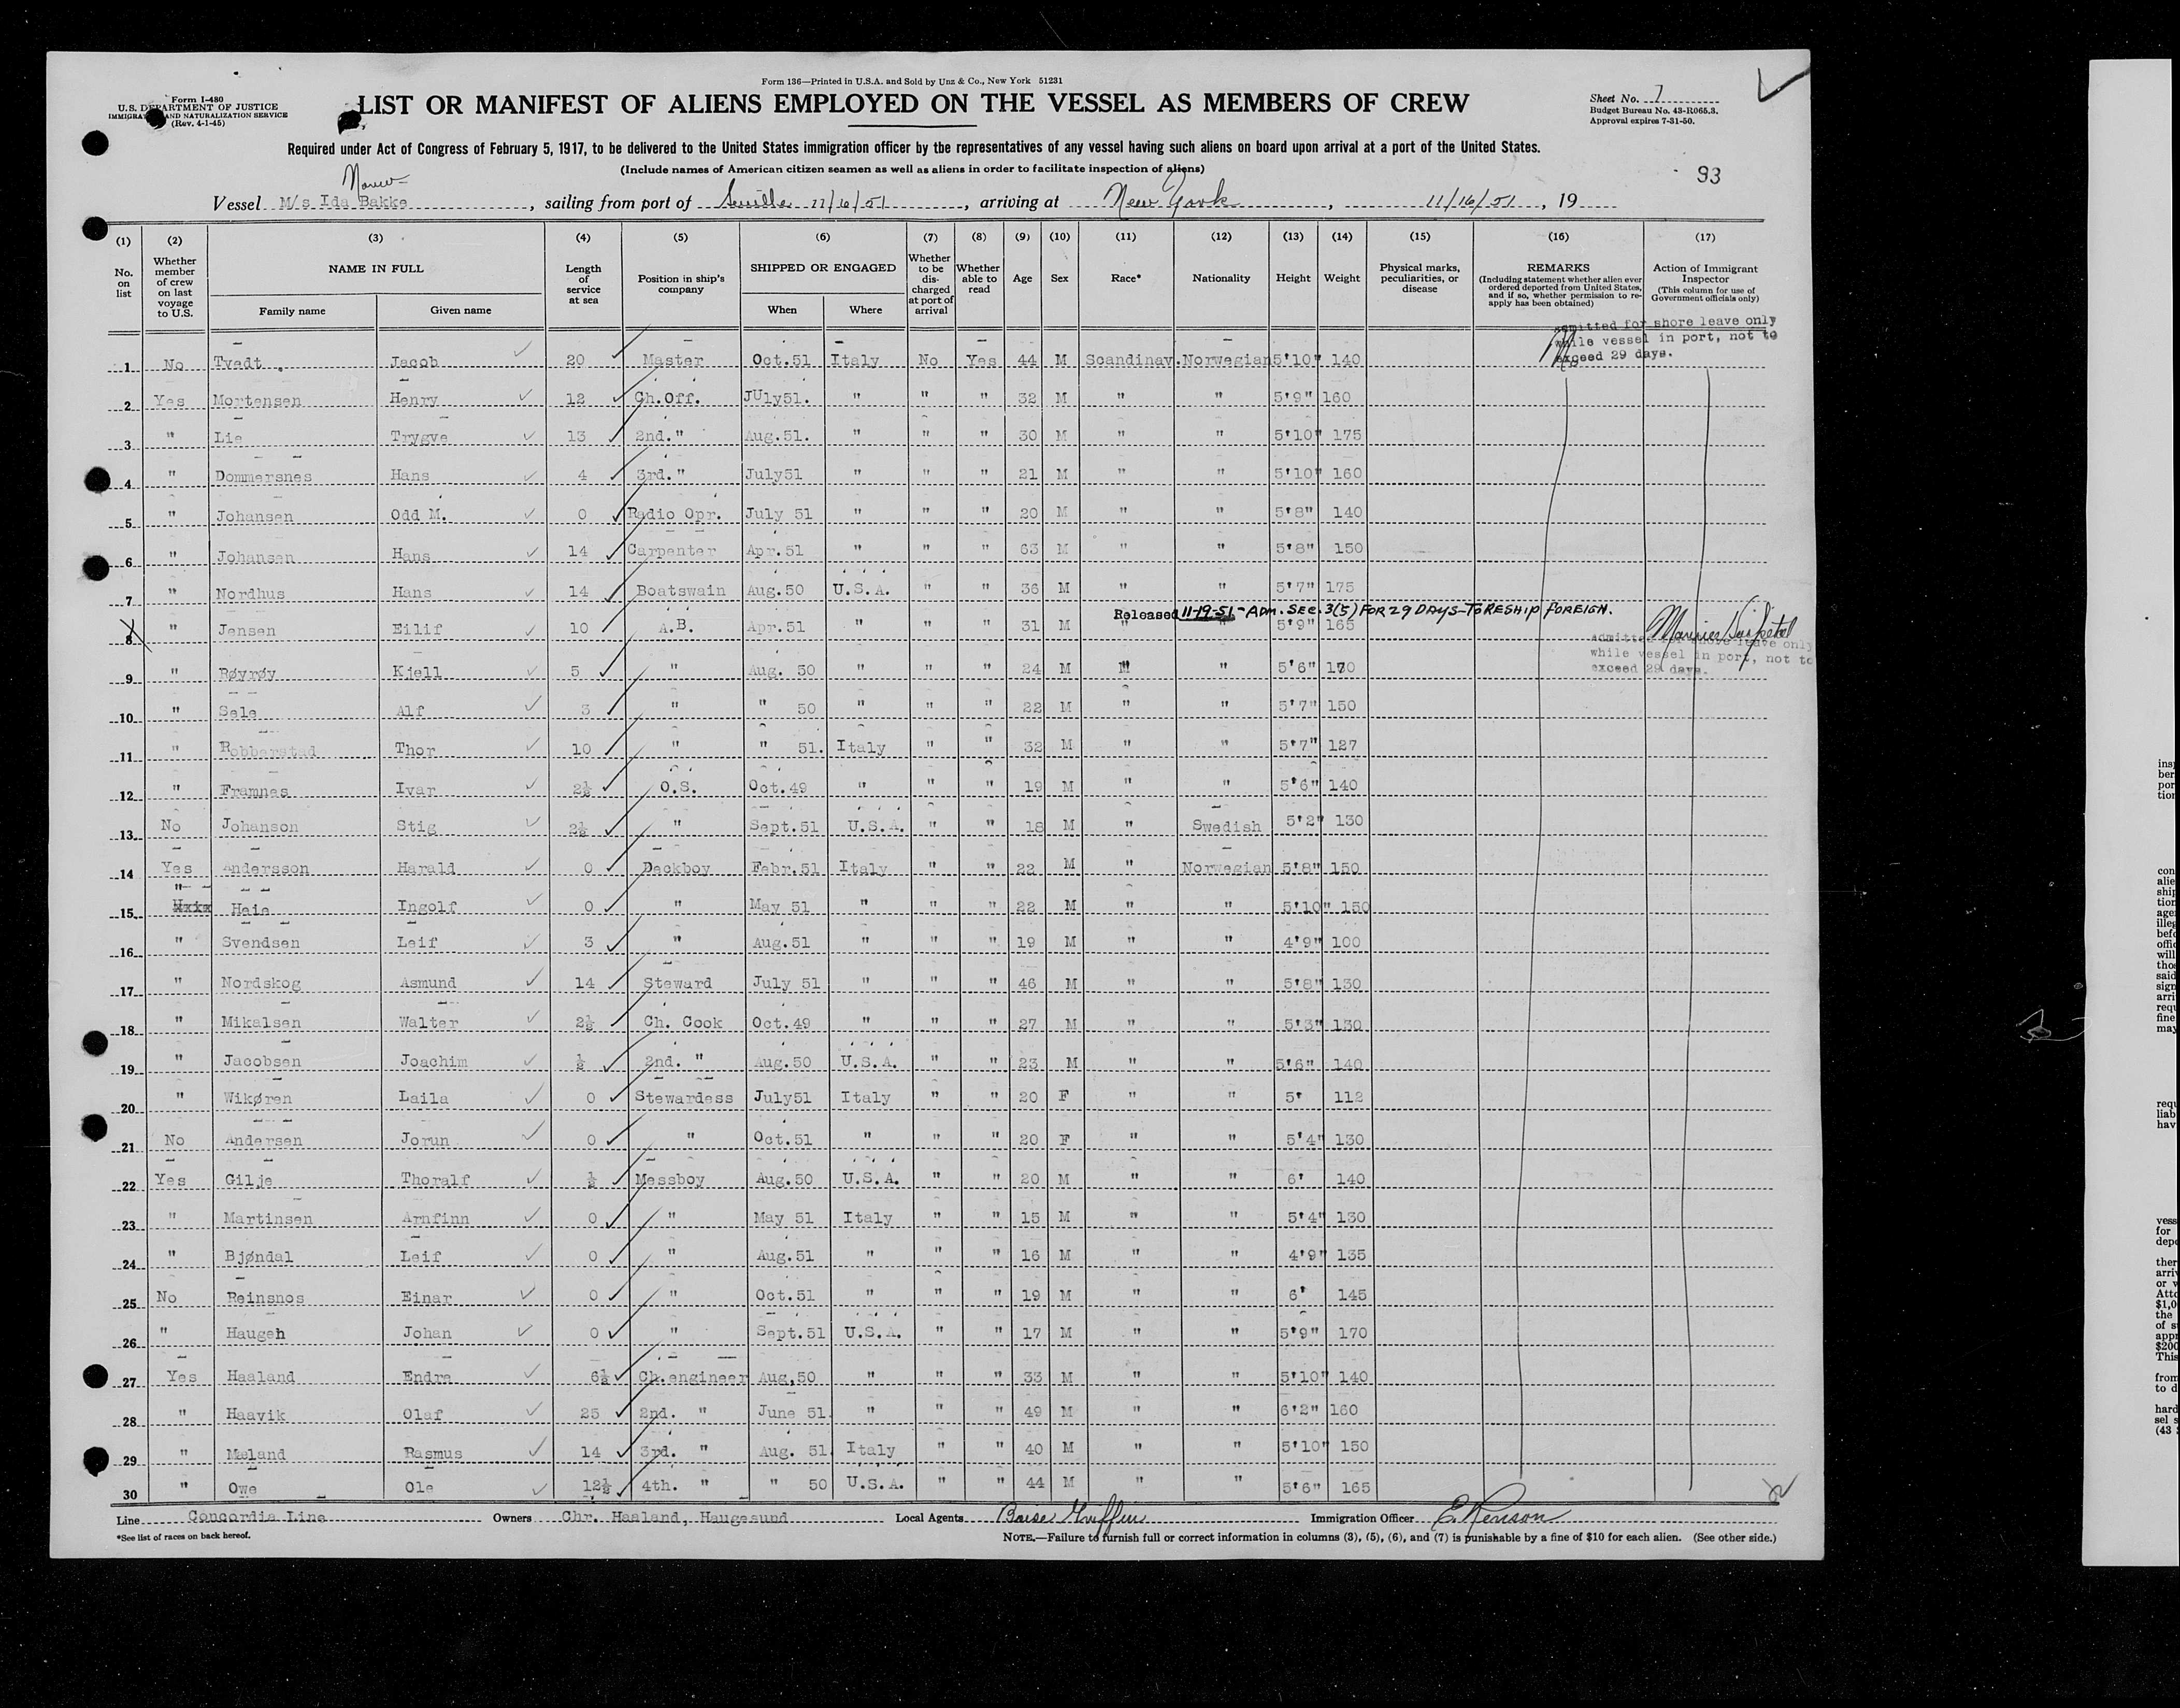 Form 136—Printed in U.S.A. and Sold by Unz & Co., New York 51231
Form I-480
U.S. DEPARTMENT OF JUSTICE
IMMIGRATION AND NATURALIZATION SERVICE
(Rev. 4-1-45)
LIST OR MANIFEST OF ALIENS EMPLOYED ON THE VESSEL AS MEMBERS OF CREW
Sheet No. 1
Budget Bureau No. 43-R065.3.
Approval expires 7-31-50.
Required under Act of Congress of February 5, 1917, to be delivered to the United States immigration officer by the representatives of any vessel having such aliens on board upon arrival at a port of the United States.
(Include names of American citizen seamen as well as aliens in order to facilitate inspection of aliens)
93
Vessel M/s Ida Bakke, sailing from port of Seville 11/6/51, arriving at New York, 11/16/51, 19
(1) No. on list
(2) Whether member of crew on last voyage to U.S.
(3) NAME IN FULL Family name Given name
(4) Length of service at sea
(5) Position in ship's company
(6) SHIPPED OR ENGAGED When Where
(7) Whether to be discharged at port of arrival
(8) Whether able to read
(9) Age
(10) Sex
(11) Race*
(12) Nationality
(13) Height
(14) Weight
(15) Physical marks, peculiarities, or disease
(16) REMARKS (Including statement whether alien ever ordered deported from United States, and if so, whether permission to reapply has been obtained)
(17) Action of Immigrant Inspector (This column for use of Government officials only)
Admitted for shore leave only
while vessel in port, not to
exceed 29 days.
1 No Tvedt Jacob 20 Master Oct.51 Italy No Yes 44 M Scandinav. Norwegian 5'10" 140
2 Yes Mortensen Henry 12 Ch.Off. JUly51. " " " 32 M " " 5'9" 160
3 " Lie Trygve 13 2nd." Aug.51. " " " 30 M " " 5'10" 175
4 " Dommersnes Hans 4 3rd." July51 " " " 21 M " " 5'10" 160
5 " Johansen Odd M. 0 Radio Opr. July 51 " " " 20 M " " 5'8" 140
6 " Johansen Hans 14 Carpenter Apr.51 " " " 63 M " " 5'8" 150
7 " Nordhus Hans 14 Boatswain Aug.50 U.S.A. " " 36 M " " 5'7" 175
Released 11-19-51 - ADM. SEC. 3(5) FOR 29 DAYS - TO RESHIP FOREIGN.
8 " Jensen Eilif 10 A.B. Apr.51 " " " 31 M " " 5'9" 165
Admitted for shore leave only
while vessel in port, not to
exceed 29 days.
9 " Røyrøy Kjell 5 " Aug. 50 " " " 24 M " " 5'6" 170
10 " Sele Alf 3 " " 50 " " " 22 M " " 5'7" 150
11 " Robberstad Thor 10 " " 51. Italy " " 32 M " " 5'7" 127
12 " Framnes Ivar 2½ O.S. Oct.49 " " " 19 M " " 5'6" 140
13 No Johanson Stig 2½ " Sept.51 U.S.A. " " 18 M " Swedish 5'2" 130
14 Yes Andersson Harald 0 Deckboy Febr.51 Italy " " 22 M " Norwegian 5'8" 150
15 " Heie Ingolf 0 " May 51 " " " 22 M " " 5'10" 150
16 " Svendsen Leif 3 " Aug.51 " " " 19 M " " 4'9" 100
17 " Nordskog Asmund 14 Steward July 51 " " " 46 M " " 5'8" 130
18 " Mikalsen Walter 2½ Ch. Cook Oct.49 " " " 27 M " " 5'3" 130
19 " Jacobsen Joachim ½ 2nd. " Aug.50 U.S.A. " " 23 M " " 5'6" 140
20 " Wikøren Laila 0 Stewardess July51 Italy " " 20 F " " 5' 112
21 No Andersen Jorun 0 " Oct.51 " " " 20 F " " 5'4" 130
22 Yes Gilje Thoralf ½ Messboy Aug.50 U.S.A. " " 20 M " " 6' 140
23 " Martinsen Arnfinn 0 " May 51 Italy " " 15 M " " 5'4" 130
24 " Bjøndal Leif 0 " Aug.51 " " " 16 M " " 4'9" 135
25 No Reinsnos Einar 0 " Oct.51 " " " 19 M " " 6' 145
26 " Haugeh Johan 0 " Sept.51 U.S.A. " " 17 M " " 5'9" 170
27 Yes Haaland Endre 6½ Ch.engineer Aug,50 " " " 33 M " " 5'10" 140
28 " Haavik Olaf 25 2nd. " June 51. " " " 49 M " " 6'2" 160
29 " Mæland Rasmus 14 3rd. " Aug. 51. Italy " " 40 M " " 5'10" 150
30 " Owe Ole 12½ 4th. " " 50 U.S.A. " " 44 M " " 5'6" 165
Line Concordia Line Owners Chr. Haaland, Haugesund Local Agents Boise Griffin Immigration Officer
*See list of races on back hereof.
NOTE.—Failure to furnish full or correct information in columns (3), (5), (6), and (7) is punishable by a fine of $10 for each alien. (See other side.)